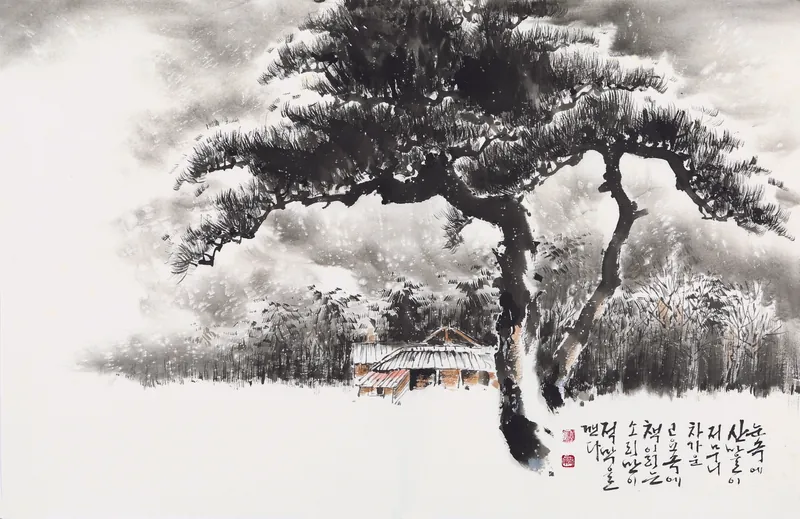 눈속에
산마을이
저무니
차가운
고요속에
책읽는
소리만이
적막을
깬다